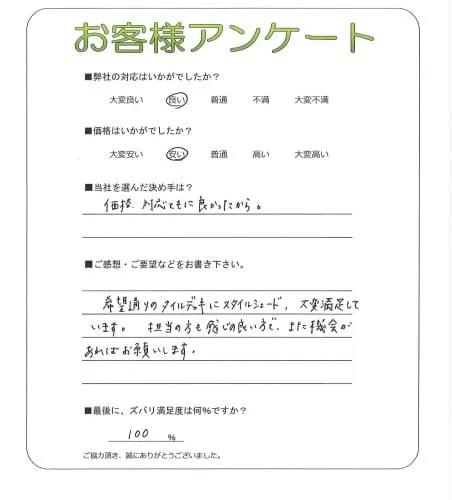 お客様アンケート
■弊社の対応はいかがでしたか？
大変良い 良い 普通 不満 大変不満
■価格はいかがでしたか？
大変安い 安い 普通 高い 大変高い
■当社を選んだ決め手は？
価格、対応ともに良かったから。
■ご感想・ご要望などをお書き下さい。
希望通りのタイルデッキにスタイルシェード、大変満足して
います。担当の方も感じの良い方で、また機会が
あればお願いします。
■最後に、ズバリ満足度は何%ですか？
100 %
ご協力頂き、誠にありがとうございました。